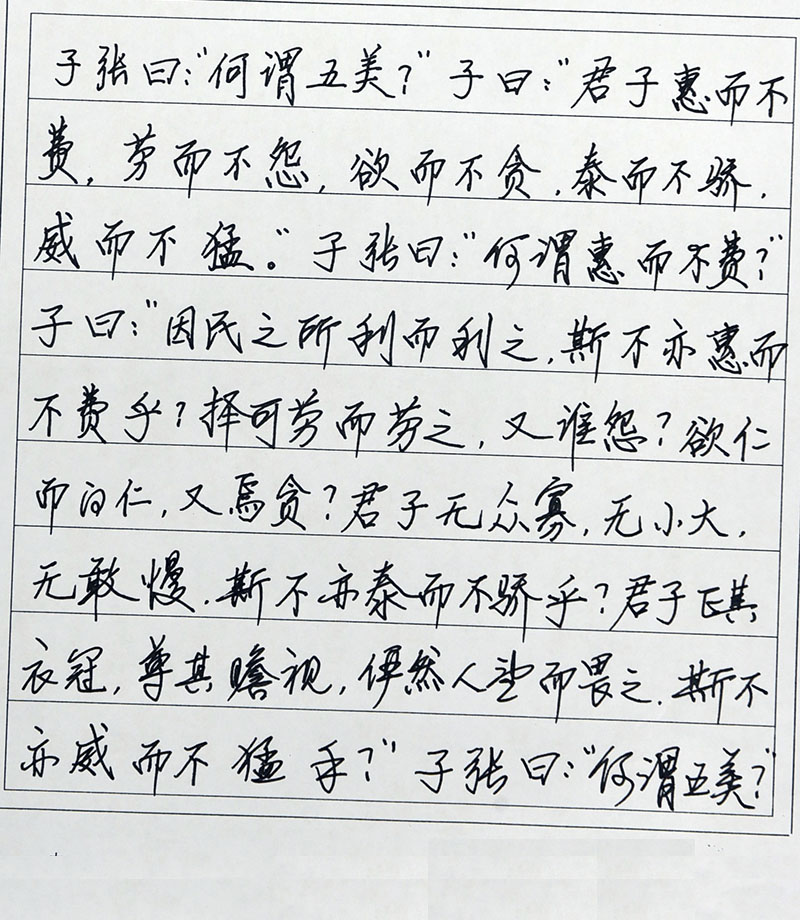 子张曰:"何谓五美?"子曰:"君子惠而不
费,劳而不怨,欲而不贪,泰而不骄,
威而不猛。"子张曰:"何谓惠而不费?"
子曰:"因民之所利而利之,斯不亦惠而
不费乎?择可劳而劳之,又谁怨?欲仁
而的仁,又焉贪?君子无众寡,无小大,
无敢慢,斯不亦泰而不骄乎?君子正其
衣冠,尊其瞻视,俨然人望而畏之,斯不
亦威而不猛乎?"子张曰:"何谓五美?"